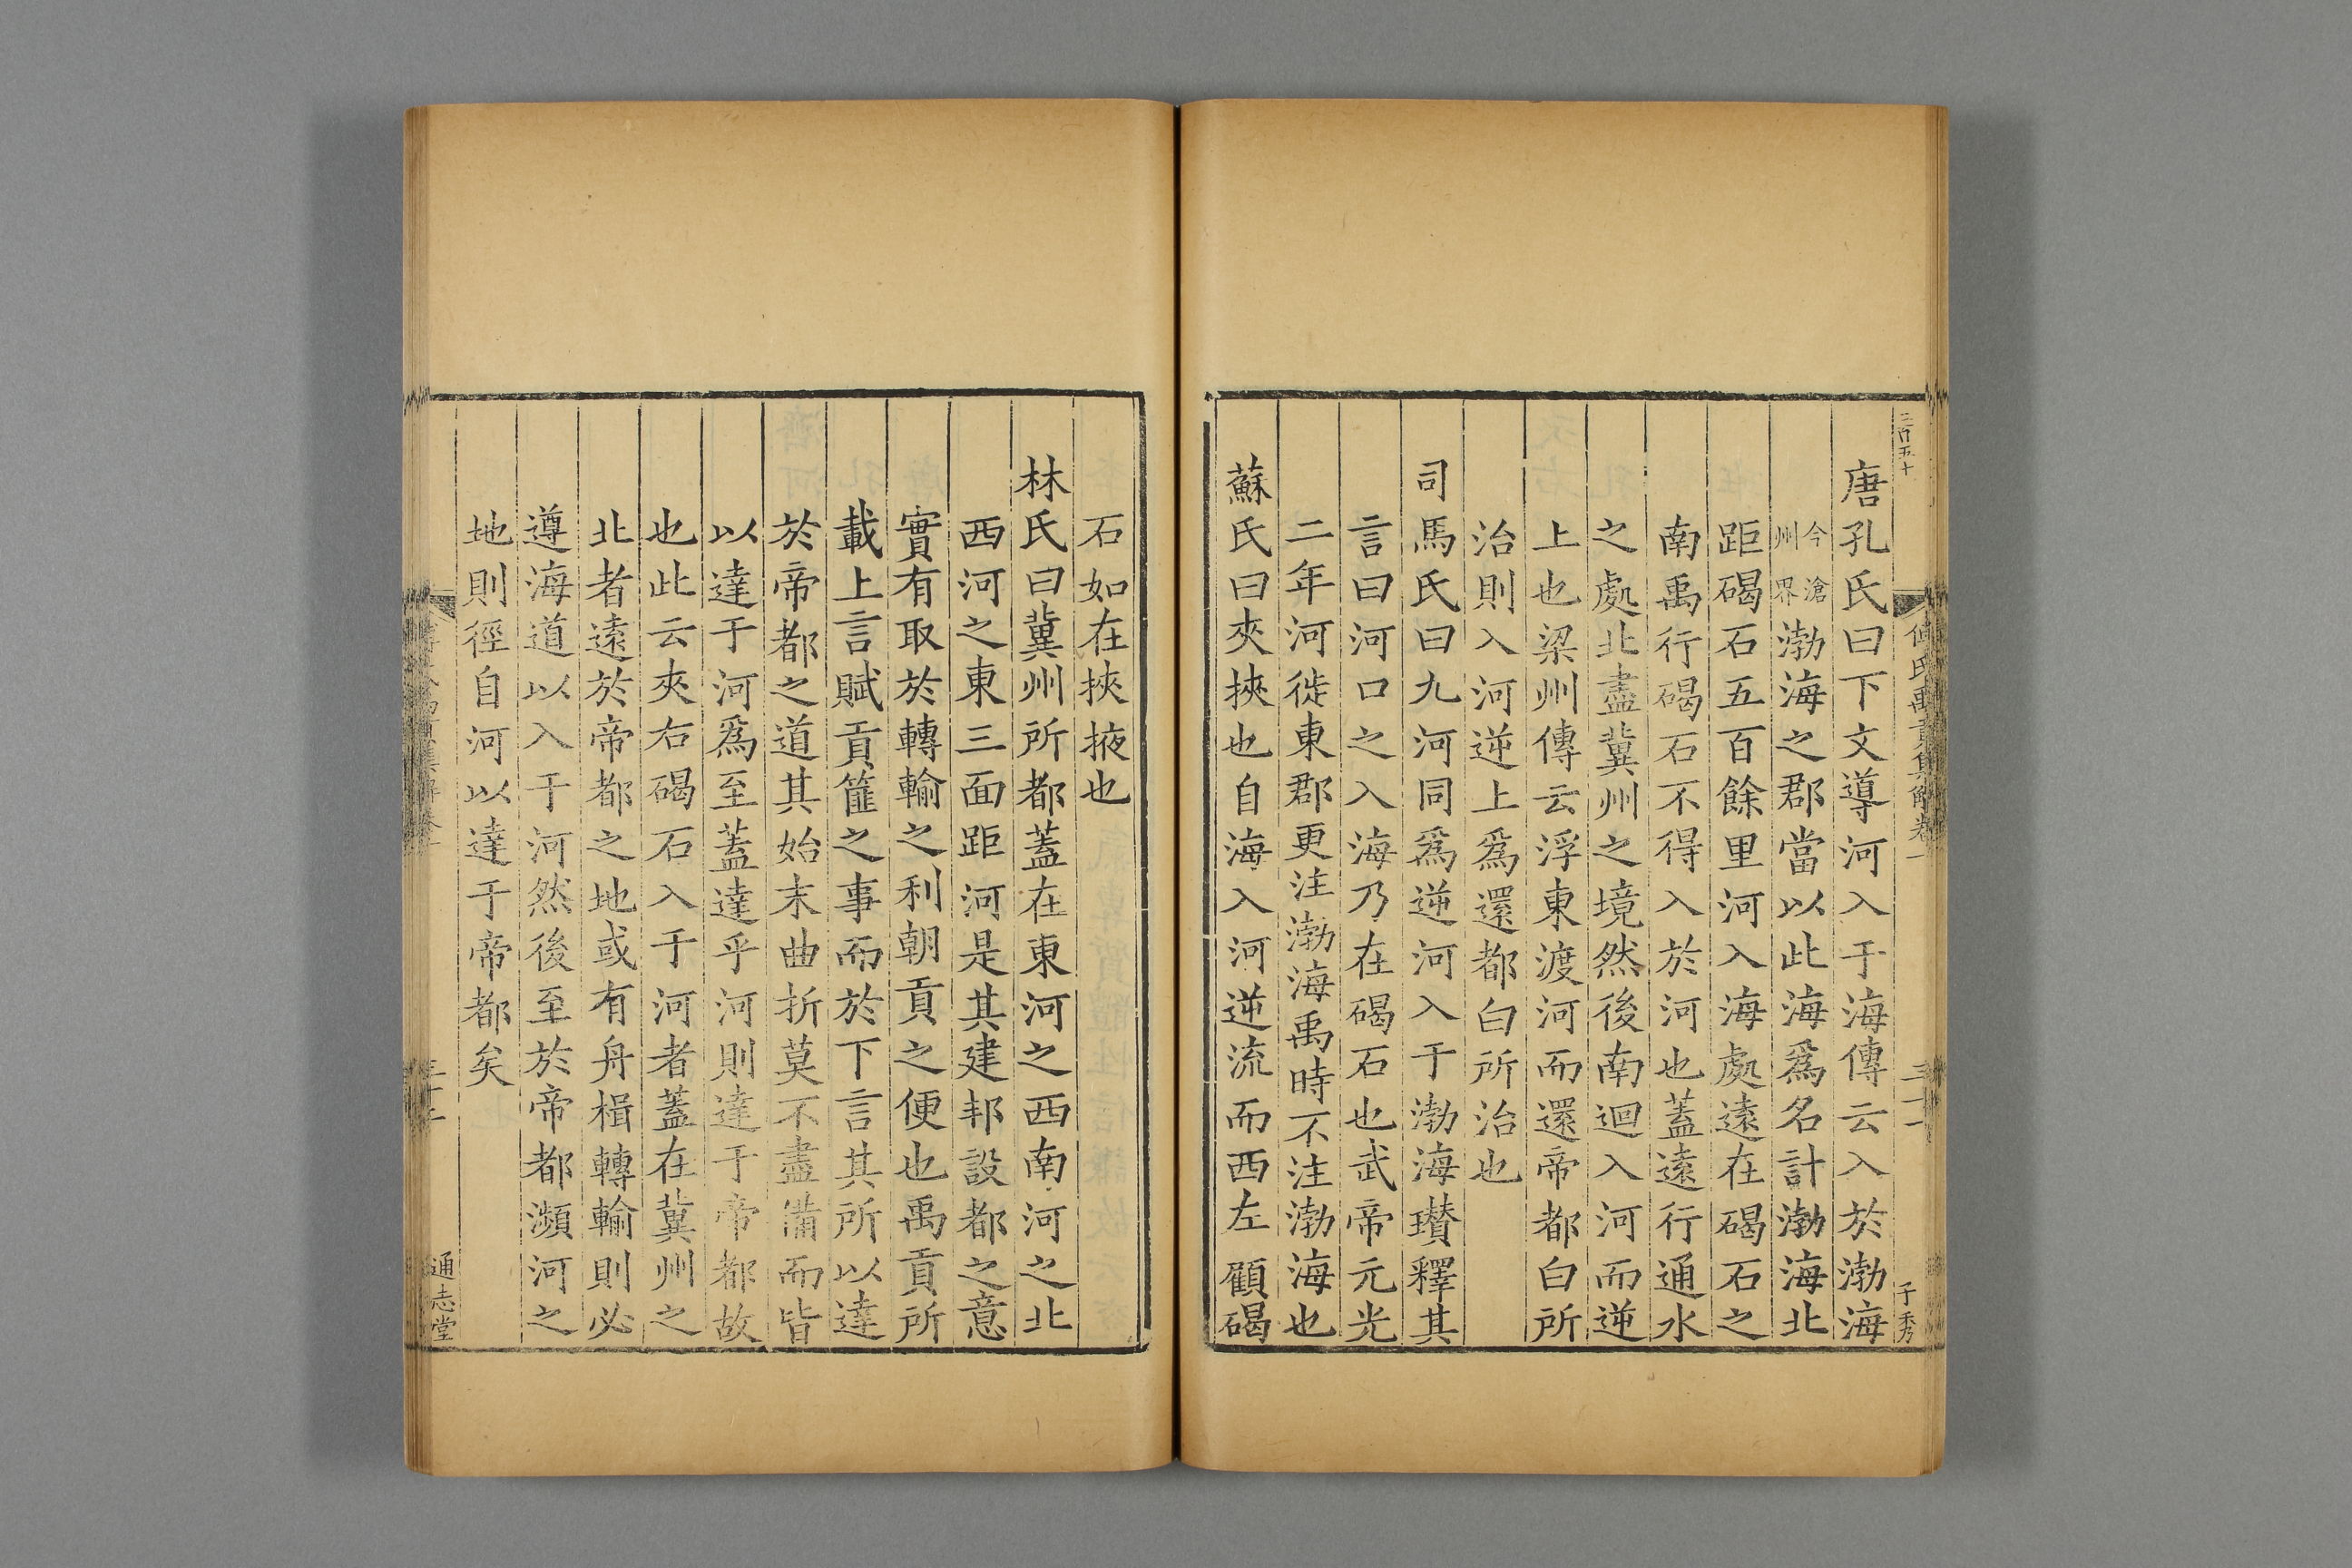 三百五十
傅氏禹貢集解卷一
于秀
唐孔氏曰下文導河入于海傳云入於渤海
今滄
州界
渤海之郡當以此海爲名計渤海北
距碣石五百餘里河入海處遠在碣石之
南禹行碣石不得入於河也蓋遠行通水
之處北盡冀州之境然後南迴入河而逆
上也梁州傳云浮東渡河而還帝都白所
治則入河逆上爲還都白所治也
司馬氏曰九河同爲逆河入于渤海瓚釋其
言曰河口之入海乃在碣石也武帝元光
二年河徙東郡更注渤海禹時不注渤海也
蘇氏曰夾挾也自海入河逆流而西左顧碣
石如在挾掖也
林氏曰冀州所都蓋在東河之西南河之北
西河之東三面距河是其建邦設都之意
實有取於轉輸之利朝貢之便也禹貢所
載上言賦貢篚之事而於下言其所以達
於帝都之道其始末曲折莫不盡備而皆
以達于河爲至蓋達乎河則達于帝都故
也此云夾右碣石入于河者蓋在冀州之
北者遠於帝都之地或有舟楫轉輸則必
遵海道以入于河然後至於帝都瀕河之
地則徑自河以達于帝都矣
通志堂